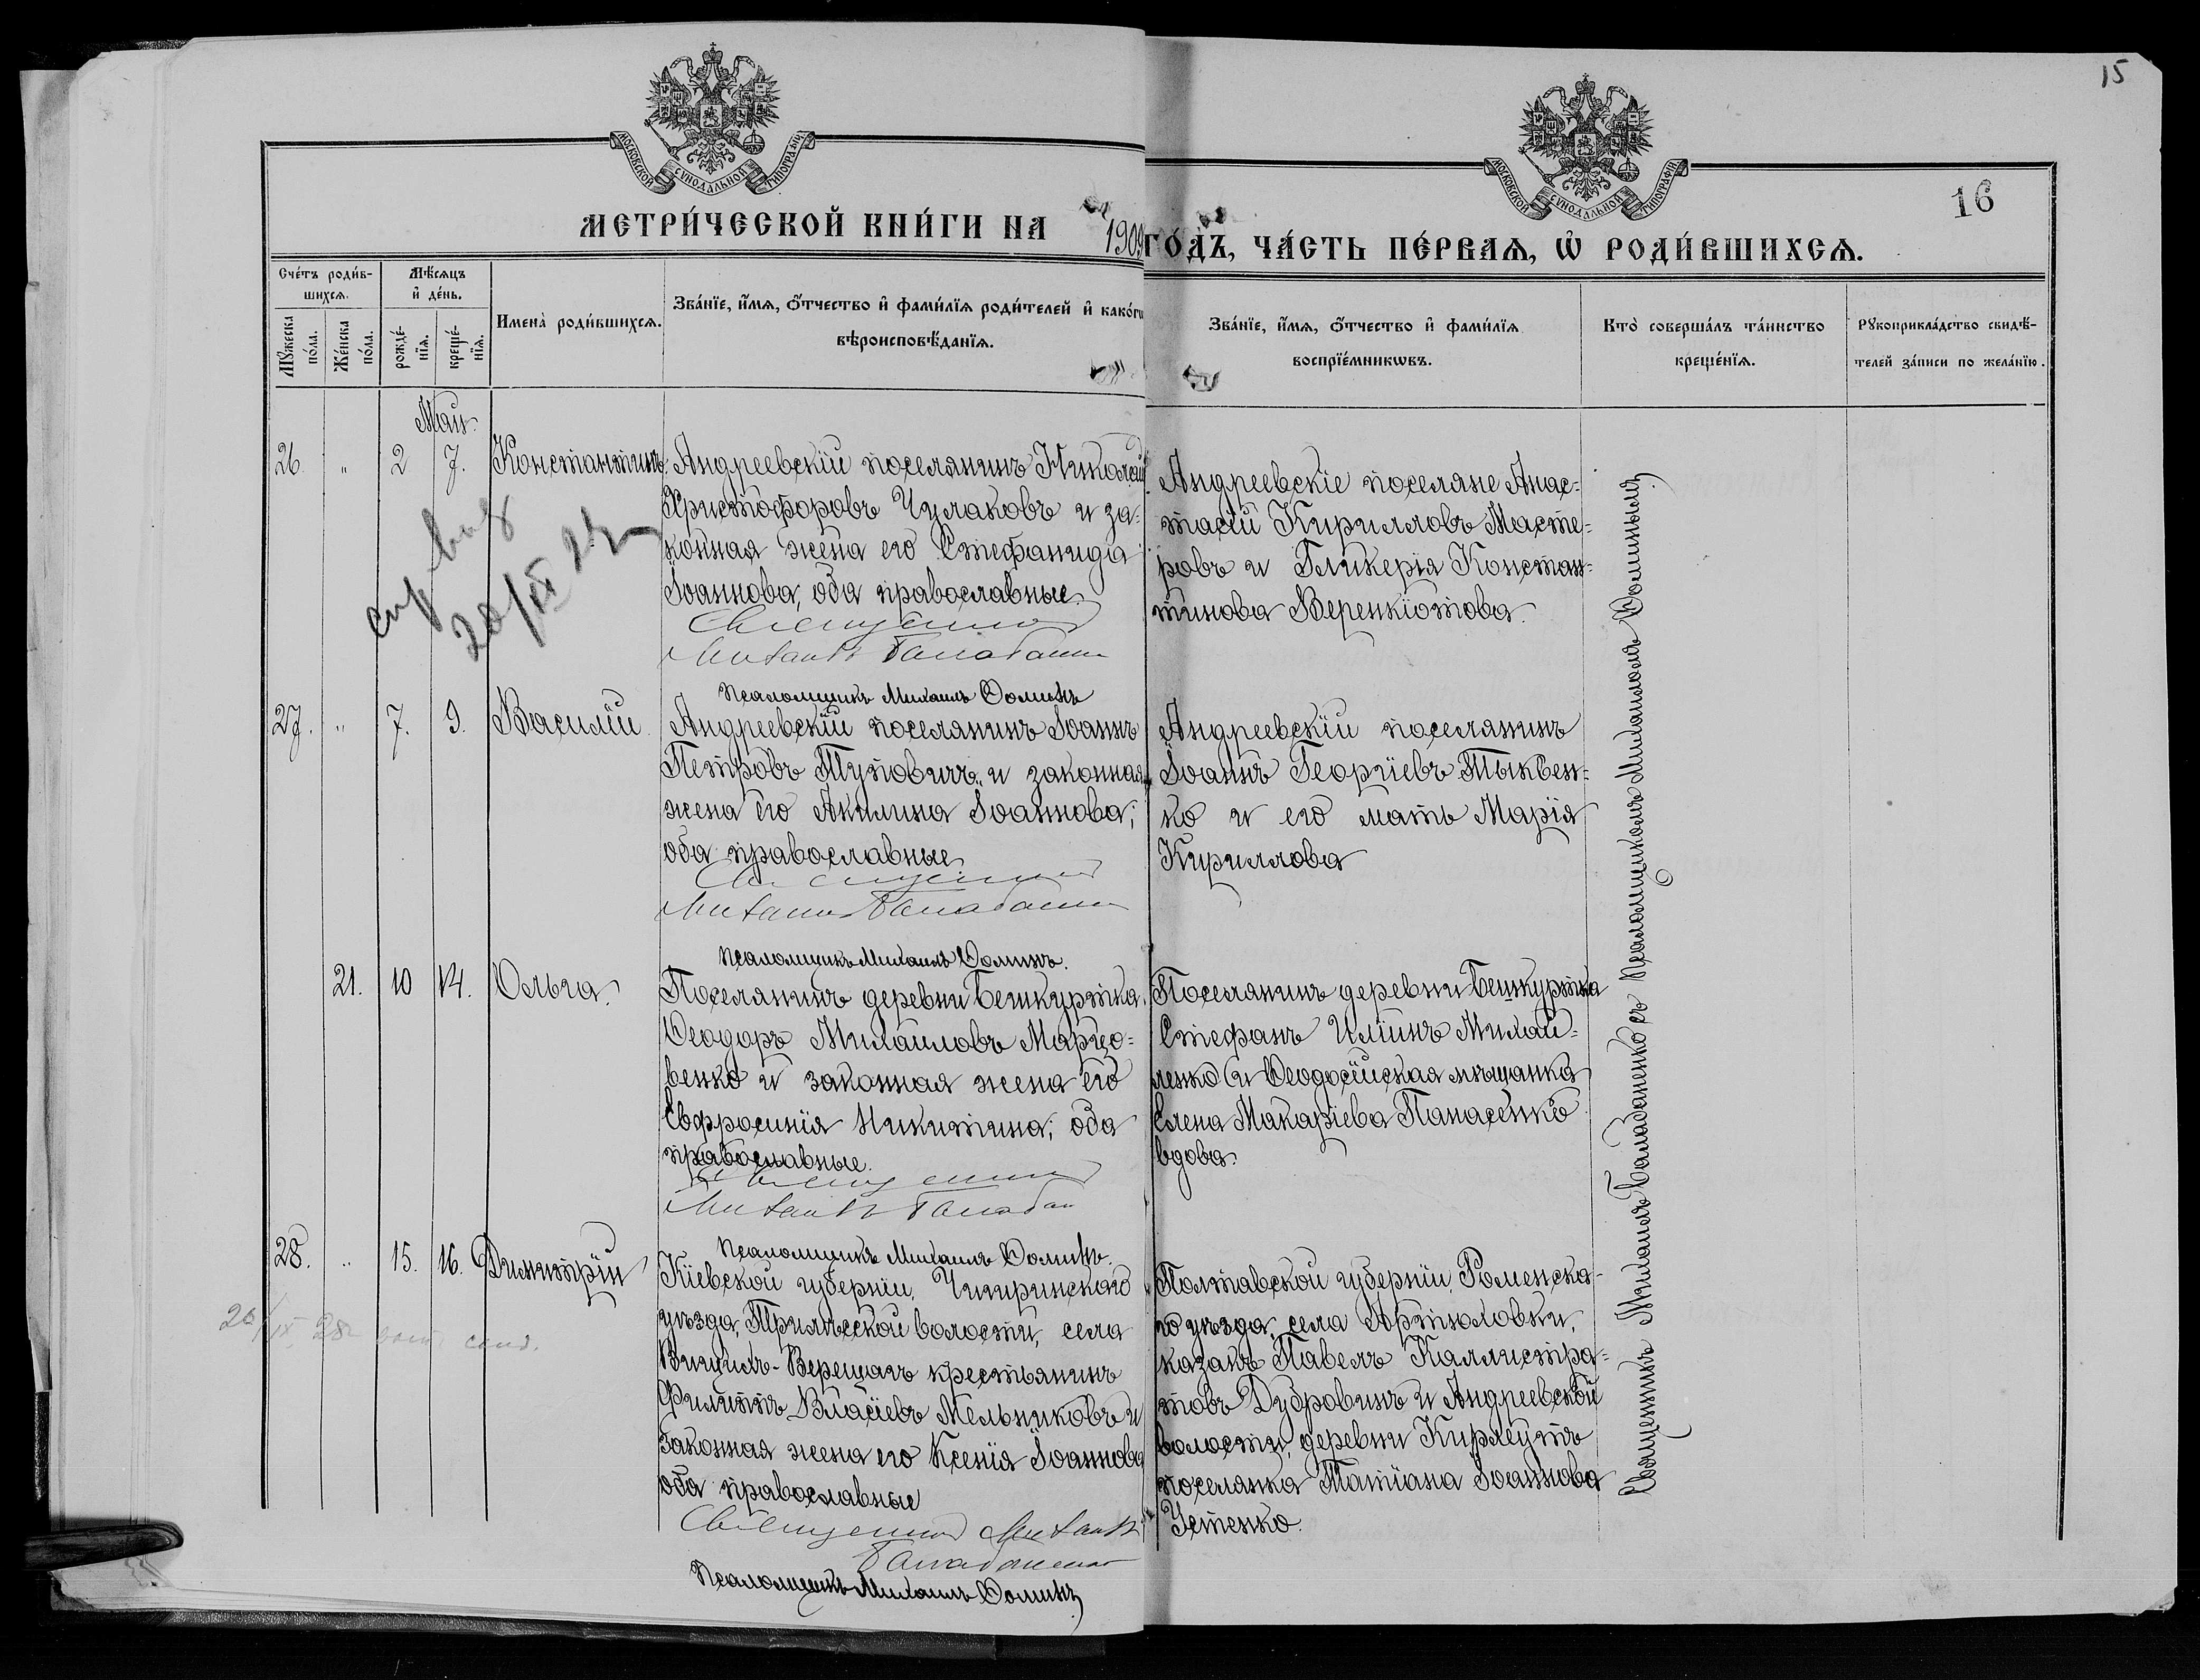 15
16
МОСКОВСКОЙ СѴНОДАЛЬНОЙ ТИПОГРАФІИ
МОСКОВСКОЙ СѴНОДАЛЬНОЙ ТИПОГРАФІИ
МЕТРИ́ЧЕСКОЙ КНИ́ГИ НА 1909 ГО́ДЪ, ЧА́СТЬ ПЕ́РВАЯ, Ѽ РОДИ́ВШИХСЯ.
Сче́тъ роди́в-
шихся.
Мѣ́сяцъ
и҆ де́нь.
Мꙋ́жеска
по́ла.
Же́нска
по́ла.
рожде́-
нїя.
креще́-
нїя.
Имена̀ роди́вшихся.
Зва́нїе, и҆́мя, ѻ҆́тчество и҆ фами́лїя роди́телей и҆ како́гѡ
вѣроисповѣ́данїя.
Зва́нїе, и҆́мя, ѻ҆́тчество и҆ фами́лїя
воспрїе́мникѡвъ.
Кто̀ соверша́лъ та́инство
креще́нїя.
Рꙋкоприкла́дство свидѣ́-
телей за́писи по жела́нїю.
Май.
26. " 2 7. Константинъ.
Андреевскій поселянинъ Николай
Христофоровъ Чулаковъ и за-
конная жена его Стефанида
Іоаннова, оба православные.
Священник
Михаилъ Балабаненко
Псаломщикъ Михаилъ Ѳоминъ
Андреевскіе поселяне Анас-
тасій Кирилловъ Масте-
ровъ и Гликерія Констан-
тинова Веренкіотова.
20/IX
27. " 7. 9. Василій.
Андреевскій поселянинъ Іоаннъ
Петровъ Туповичъ и законная
жена его Акилина Іоаннова;
оба православные
Священник
Михаилъ Балабаненко
Псаломщикъ Михаилъ Ѳоминъ.
Андреевскій поселянинъ
Іоаннъ Георгіевъ Тыквен-
ко и его мать Марія
Кириллова
21. 10 14. Ольга.
Поселянинъ деревни Бешкуртка,
Ѳеодоръ Михаиловъ Марцо-
венко и законная жена его
Евфросинія Никитина; оба
православные.
Священник
Михаилъ Балабан
Псаломщикъ Михаилъ Ѳоминъ.
Поселянинъ деревни Бешкуртка
Стефанъ Иліинъ Михай-
ленко и Ѳеодосійская мѣщанка
Елена Макаріева Панасенко
вдова.
28. " 15. 16. Димитрій
Кіевской губерніи, Чигиринскаго
уѣзда, Трилѣсской волости, села
Верещагъ крестьянинъ
Филиппъ Власіевъ Мельниковъ и
законная жена его Ксенія Іоаннова
оба православные
Священник Михаилъ
Балабаненко
Псаломщикъ Михаилъ Ѳоминъ
Полтавской губерніи, Роменска-
го уѣзда, села Артюловки,
казакъ Павелъ Каллистра-
товъ Дубравинъ и Андреевской
волости, деревни Кирлеутъ
поселянка Татіана Іоаннова
Устенко.
Священникъ Михаилъ Балабаненко съ псаломщикомъ Михаиломъ Ѳоминымъ.